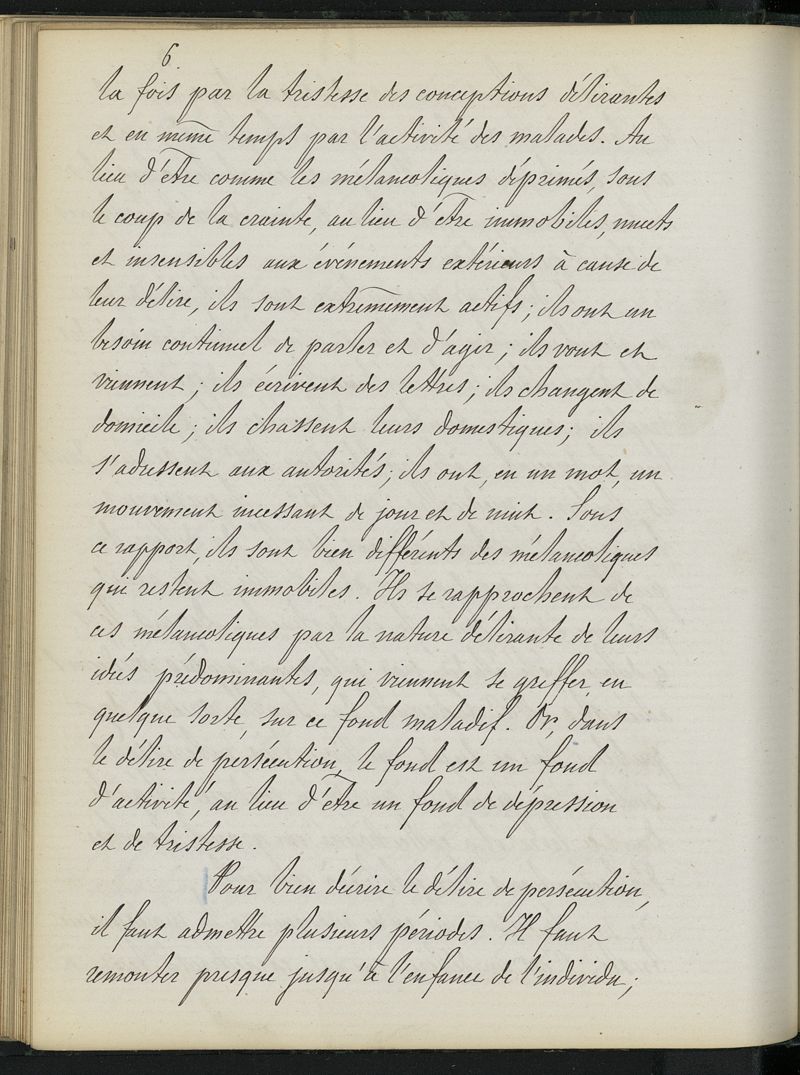 6
la fois par la tristesse des conceptions délirantes
et en même temps par l'activité des malades. Au
lieu d'être comme les mélancoliques déprimés, sous
le coup de la crainte, au lieu d'être immobiles, muets
et insensibles aux événements extérieurs à cause de
leur délire, ils sont extrêmement actifs ; ils ont un
besoin continuel de parler et d'agir ; ils vont et
viennent ; ils écrivent des lettres ; ils changent de
domicile ; ils chassent leurs domestiques ; ils
s'adressent aux autorités ; ils ont, en un mot, un
mouvement incessant de jour et de nuit. Sous
ce rapport, ils sont bien différents des mélancoliques
qui restent immobiles. Ils se rapprochent de
ces mélancoliques par la nature délirante de leurs
idées prédominantes, qui viennent se greffer, en
quelque sorte, sur ce fond maladif. Or, dans
le délire de persécution, le fond est un fond
d'activité, au lieu d'être un fond de dépression
et de tristesse.
Pour bien décrire le délire de persécution,
il faut admettre plusieurs périodes. Il faut
remonter presque jusqu'à l'enfance de l'individu ;